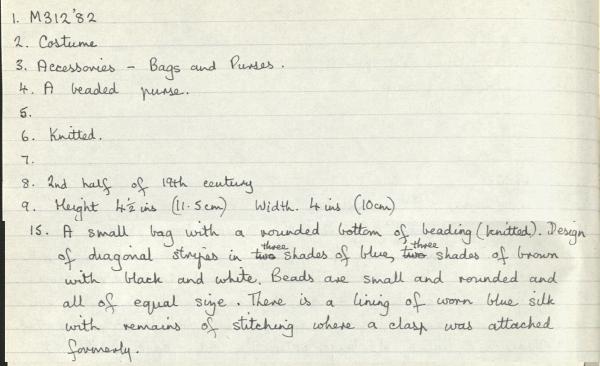 1. M312'82
2. Costume
3. Accessories - Bags and Purses.
4. A beaded purse.
5.
6. Knitted.
7.
8. 2nd half of 19th century
9. Height 4½ ins (11.5cm) Width. 4 ins (10cm)
15. A small bag with a rounded bottom of beading (knitted). Design
of diagonal stripes in ~~two~~ three shades of blue, ~~two~~ three shades of brown
with black and white. Beads are small and rounded and
all of equal size. There is a lining of worn blue silk
with remains of stitching where a clasp was attached
formerly.